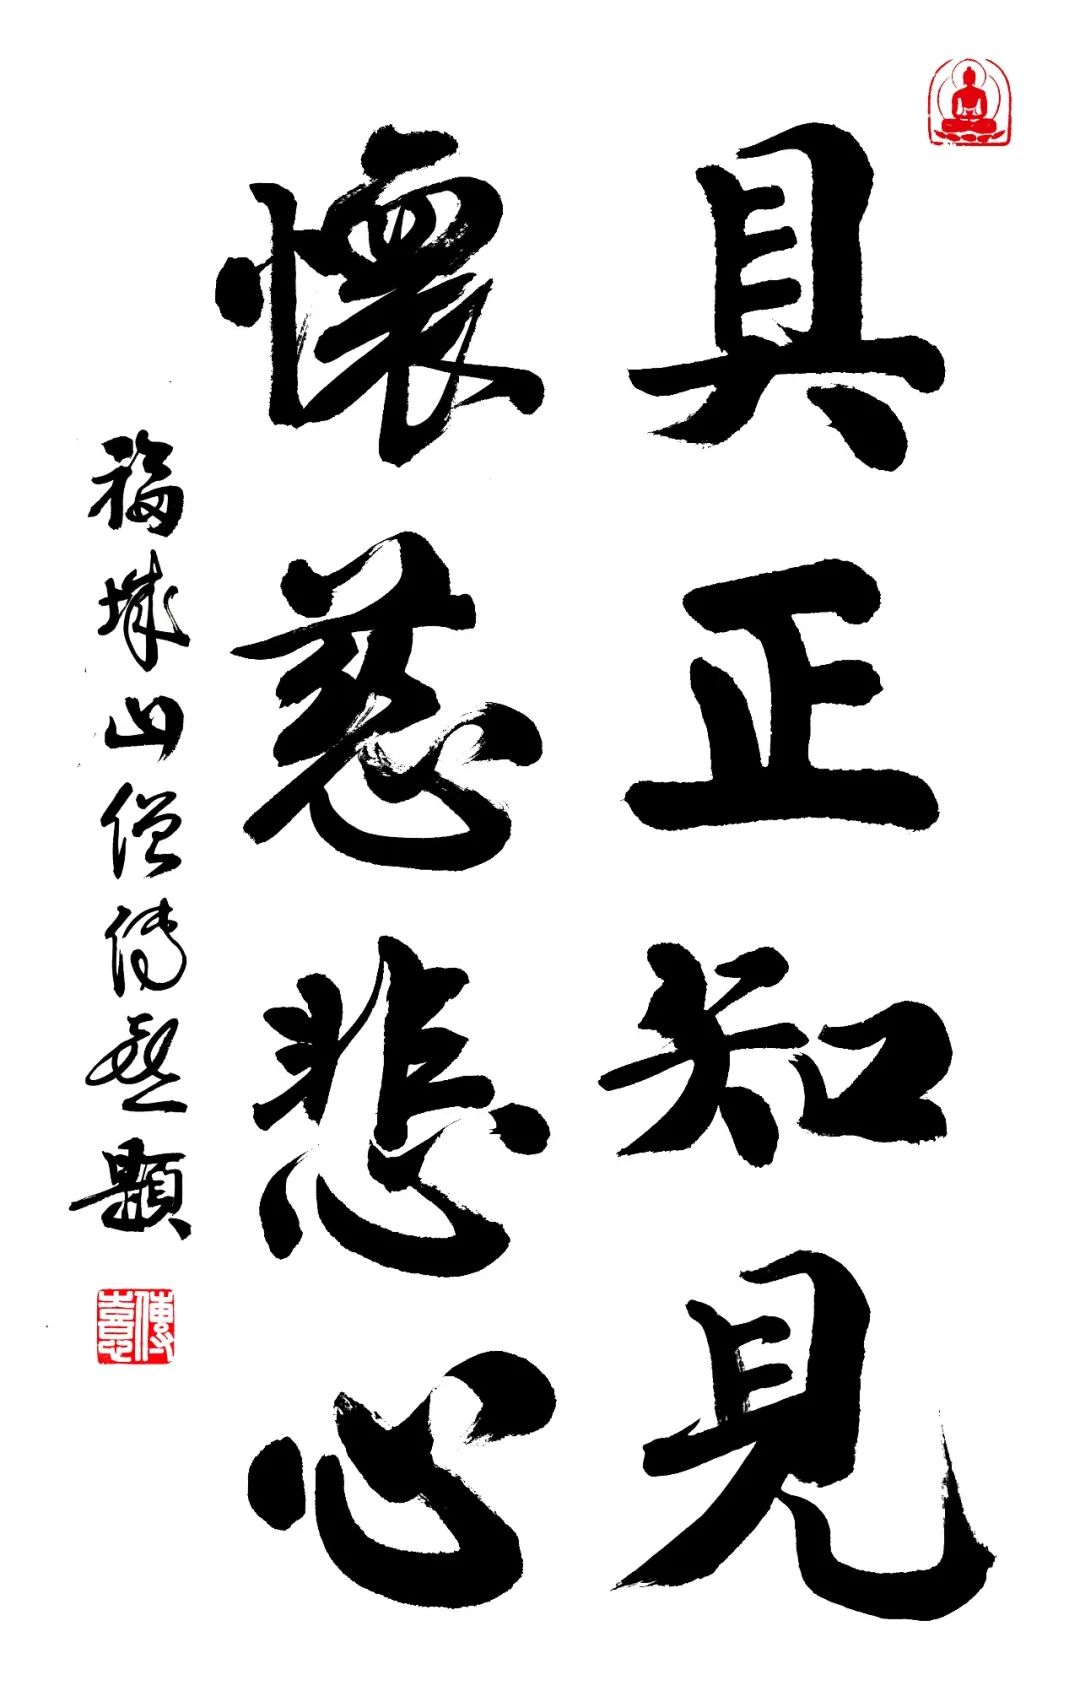 具正知見
懷慈悲心
福城山僧傳喜題
傳喜